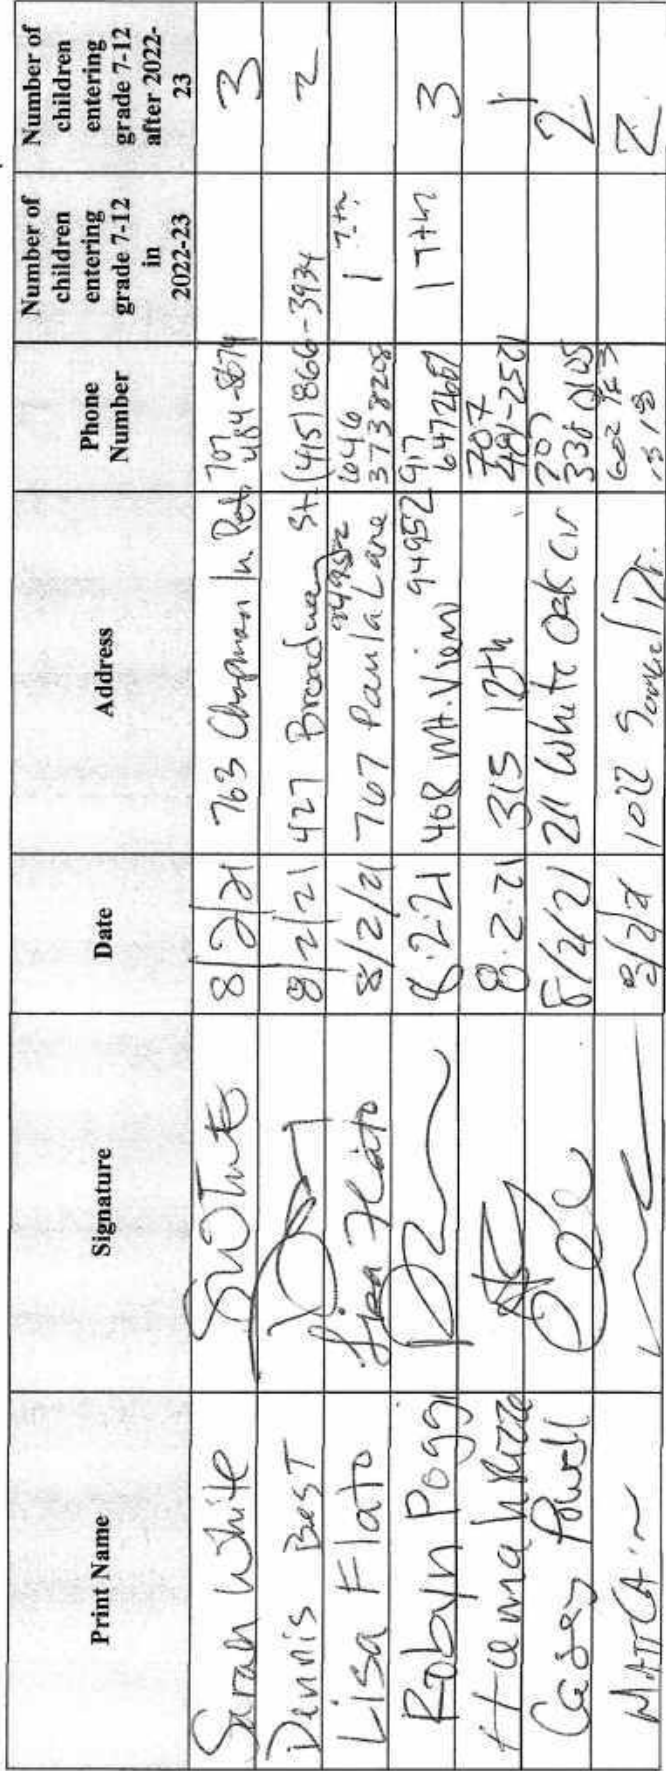 Print Name
Signature
Date
Address
Phone
Number
Number of
children
entering
grade 7-12
in
2022-23
Number of
children
entering
grade 7-12
after 2022-
23
Sarah White
SWhite
8/2/21
763 Chapman ln. Pet.
707
484-8674
3
Dennis Best
8/2/21
427 Broadway St.
(415) 866-3934
2
Lisa Flato
Lisa Flato
8/2/21
767 Paula Lane
94952
646
3738208
1 7th
Robyn Poggi
8.2.21
408 Mt. View 94952
917
6472687
1 7th
3
8.2.21
315 12th
707
481-2521
1
Casey Powell
8/2/21
211 White Oak Cir
707
338 0105
2
Matt Cain
8/2/21
1022
Dr.
602
2